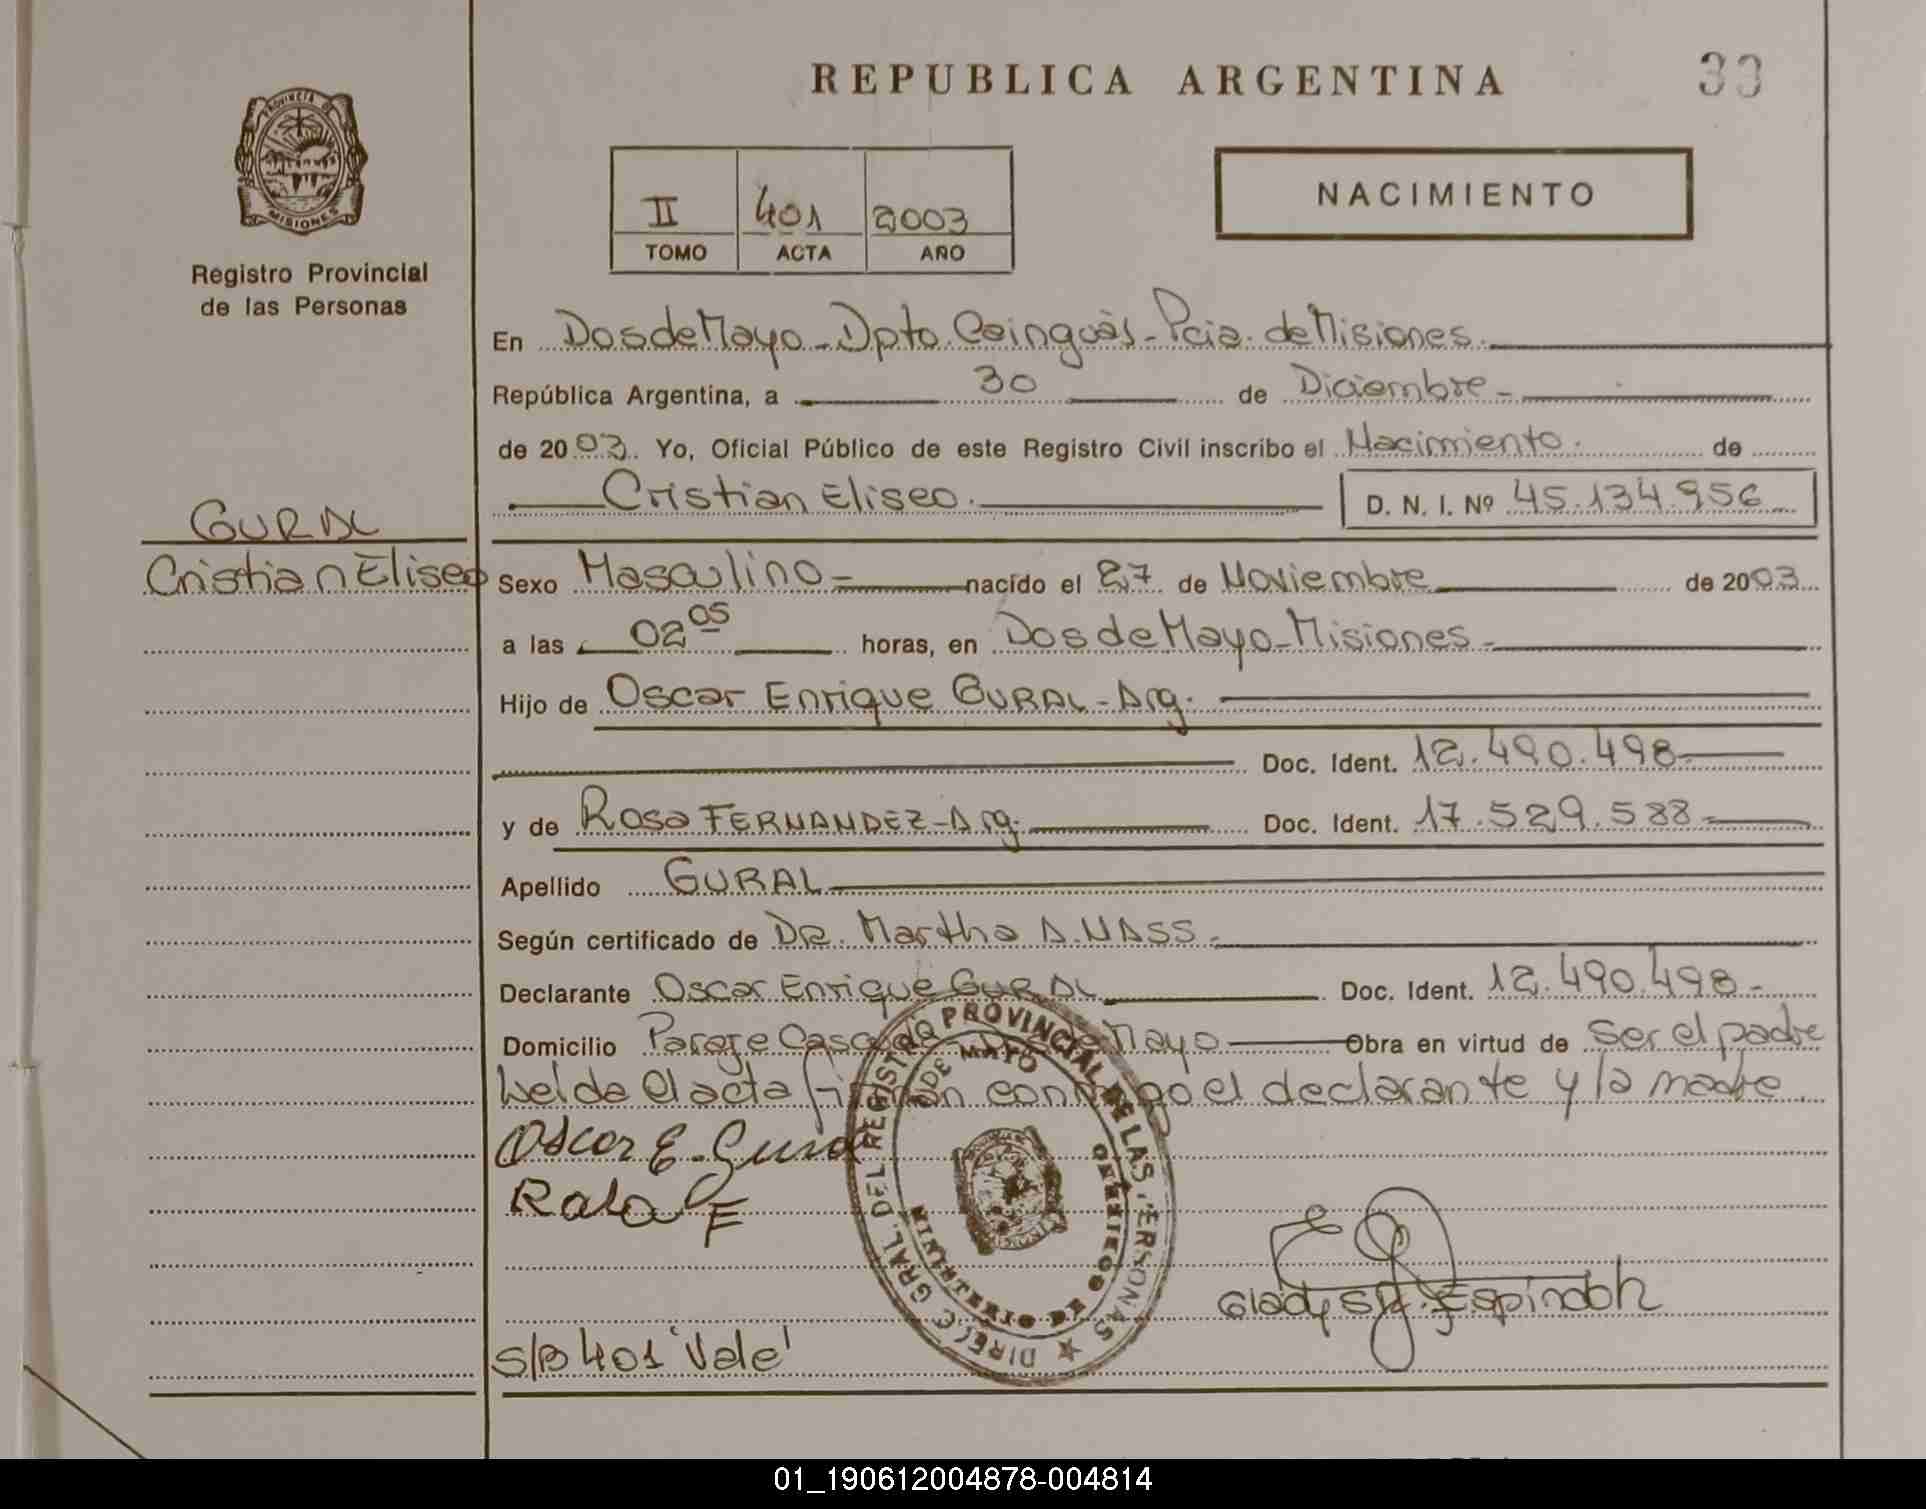 REPUBLICA ARGENTINA
33
PROVINCIA DE
MISIONES
Registro Provincial
de las Personas
II 401 2003
TOMO ACTA AÑO
NACIMIENTO
En Dos de Mayo - Dpto. Cainguás - Pcia. de Misiones.
República Argentina, a 30 de Diciembre -
de 2003. Yo, Oficial Público de este Registro Civil inscribo el Nacimiento. de
Cristian Eliseo. D. N. I. Nº 45.134.956
GURAL
Cristian Eliseo
Sexo Masculino - nacido el 27 de Noviembre de 2003
a las 02 05 horas, en Dos de Mayo - Misiones -
Hijo de Oscar Enrique GURAL - Arg.
Doc. Ident. 12.490.498
y de Rosa FERNANDEZ - Arg. Doc. Ident. 17.529.588 -
Apellido GURAL
Según certificado de DR. Martha A. NASS -
Declarante Oscar Enrique GURAL Doc. Ident. 12.490.498 -
Domicilio Paraje Mayo Obra en virtud de ser el padre
Leída el acta firman conmigo el declarante y la madre.
Oscar E. Gural
Rosa F
DIREC. GRAL. DEL REGISTRO PROVINCIAL DE LAS PERSONAS
DE MAYO
Gladys Espindola
S/B 401 'Vale'
01_190612004878-004814